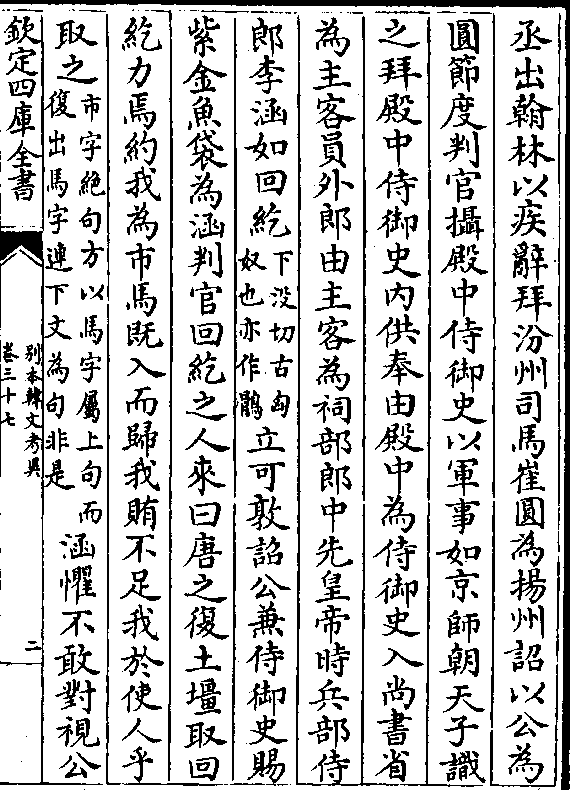 丞出翰林以疾辭拜汾州司馬崔圓為揚州詔以公為
圓節度判官攝殿中侍御史以軍事如京師朝天子識
之拜殿中侍御史內供奉由殿中為侍御史入尚書省
為主客員外郎由主客為祠部郎中先皇帝時兵部侍
郎李涵如回紇下没切古匈奴也亦作鶻立可敦詔公兼侍御史賜
紫金魚袋為涵判官回紇之人來曰唐之復土壃取回
紇力焉約我為市馬既入而歸我賄不足我於使人乎
取之市字絶句方以馬字屬上句而復出馬字連下文為句非是涵懼不敢對視公
欽定四庫全書
別本韓文考異
卷三十七
二